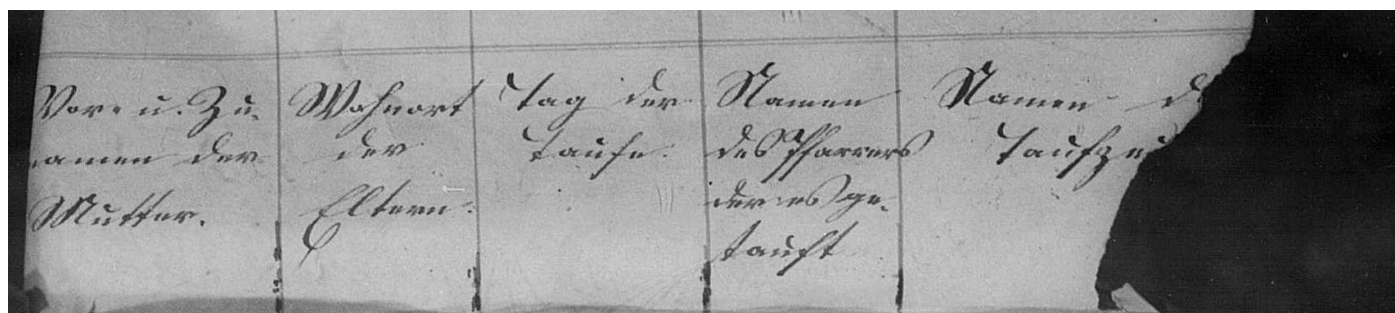 Vor- u. Zu-
namen der
Mutter.
Wohnort
der
Eltern.
Tag der
Taufe.
Namen
des Pfarrers
der es ge-
tauft
Namen d
Taufze